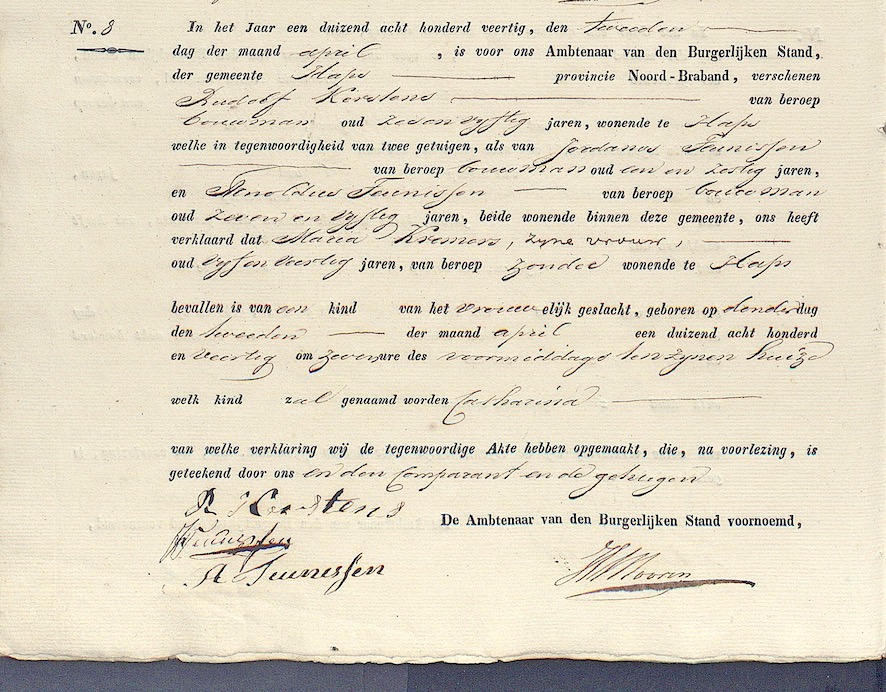 N.º 8 In het Jaar een duizend acht honderd veertig, den tweeden
dag der maand april , is voor ons Ambtenaar van den Burgerlijken Stand,
der gemeente Haps provincie Noord-Braband, verschenen
Rudolf Kerstens van beroep
bouwman oud zeven vyftig jaren, wonende te Haps
welke in tegenwoordigheid van twee getuigen, als van Jordanus Teunissen
van beroep bouwman oud een en zestig jaren,
en Arnoldus Teunissen van beroep bouwman
oud zeven en vyftig jaren, beide wonende binnen deze gemeente, ons heeft
verklaard dat Maria Kremers, zyne vrouw,
oud vyf en veertig jaren, van beroep zonder wonende te Haps
bevallen is van een kind van het vrouwelijk geslacht, geboren op donderdag
den tweeden der maand april een duizend acht honderd
en veertig om zeven ure des voormiddags ten zynen huize
welk kind zal genaamd worden Catharina
van welke verklaring wij de tegenwoordige Akte hebben opgemaakt, die, na voorlezing, is
geteekend door ons en den Comparant en de getuigen
R Kerstens
De Ambtenaar van den Burgerlijken Stand voornoemd,
Teunissen
A Teunissen